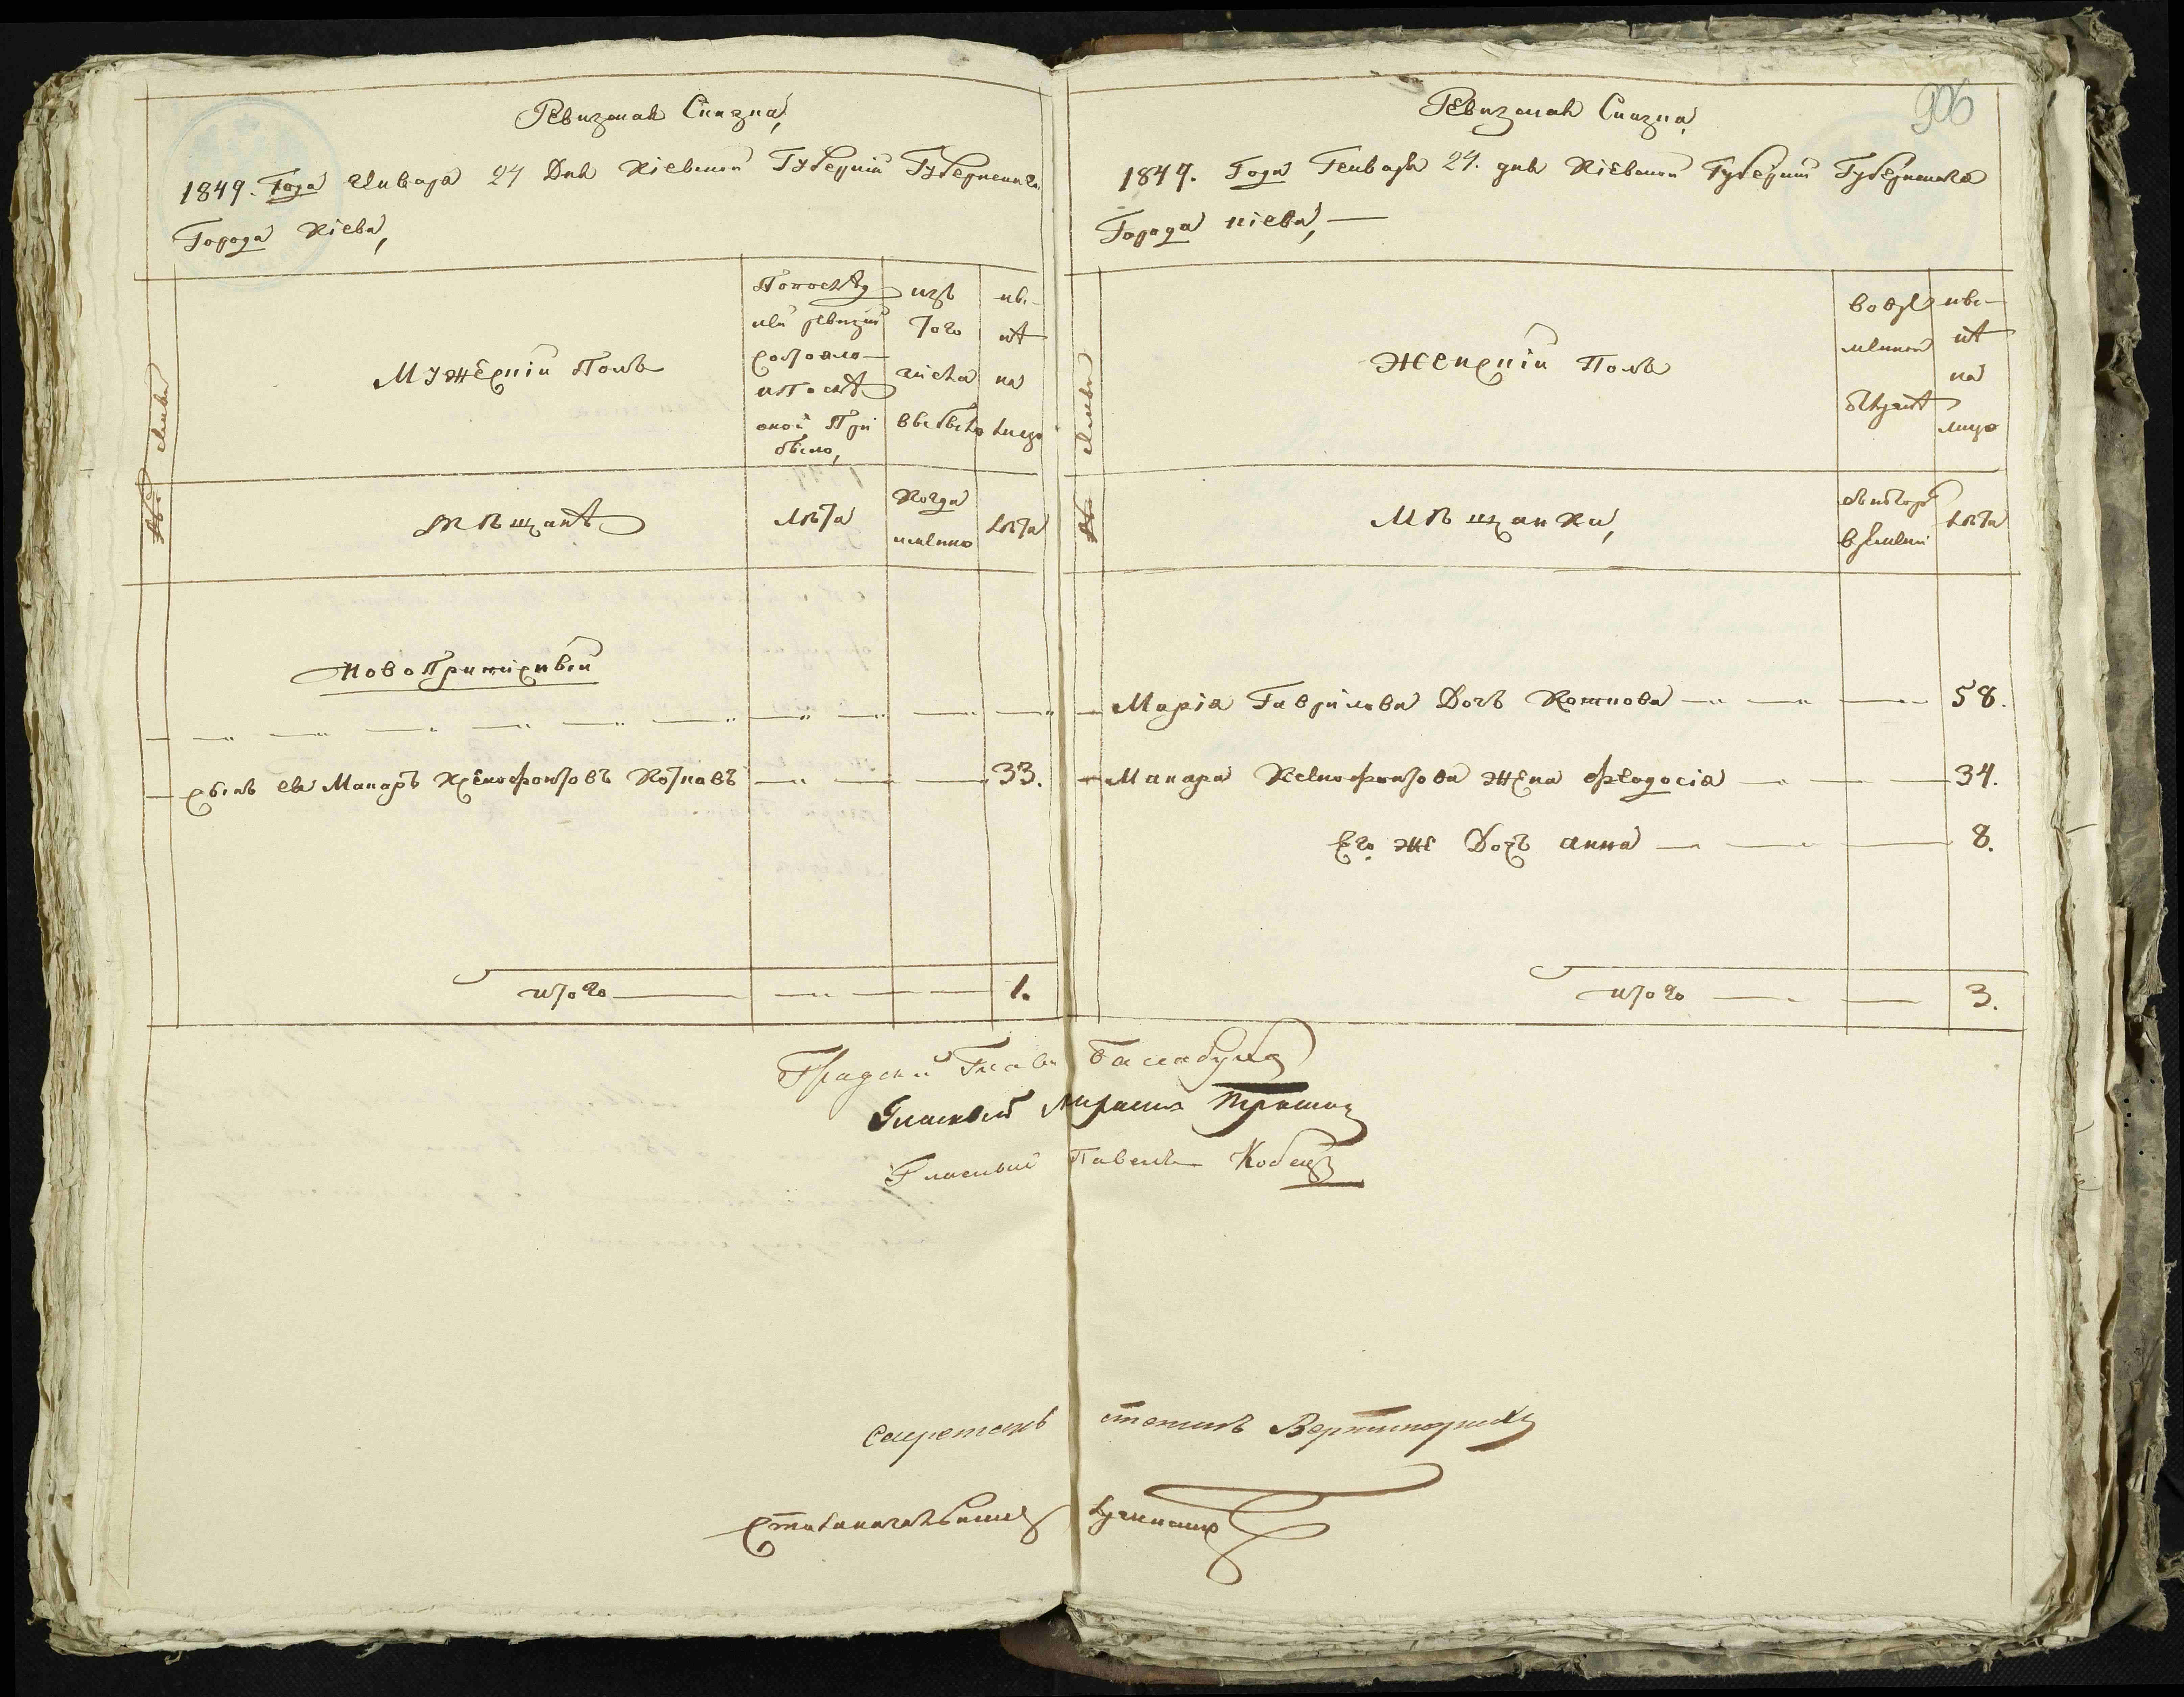 Ревизская Сказка,
1849. Года Января 24 Дня Кіевской Губерніи Губернскаго
Города Кіева,
Семьи
Мужескій Полъ
По послед
ней ревизіи
состояло
и после
оной При
было,
изъ
того
числа
выбыло
ны-
не
на
лицо
№
Мѣщане
лѣта
Когда
именно
лѣта
Новоприписной
сынъ ея Макаръ Ксенофонтовъ Котковъ 33.
итого 1.
906
Ревизская Сказка,
1849. Года Генваря 24. дня Кіевской Губерніи Губернскаго
Города кіева,
Семьи
Женскій Полъ
во вре
менной
отлучке
ны-
не
на
лицо
№
Мѣщанки,
съ котораго
времени
лѣта
Марія Гаврилова Дочь Коткова 58.
Макара Ксенофонтова жена Феодосія 34.
Его же Дочь анна 8.
итого 3.
Градскій Глава Балабуха
Гласный
Гласный Павелъ Кобецъ
Секретарь
Столоначальникъ